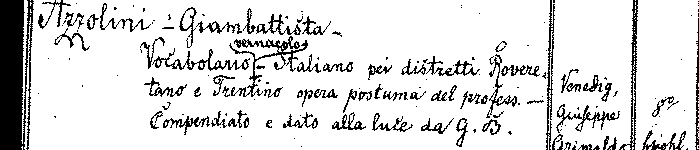 Azzolini - Giambattista -
vernacolo
Vocabolario - Italiano pei distretti Rovere-
tano e Trentino opera postuma del profess. -
Compendiato e dato alla luce da G. B.
Venedig,
Giuseppe
Grimaldo
8º